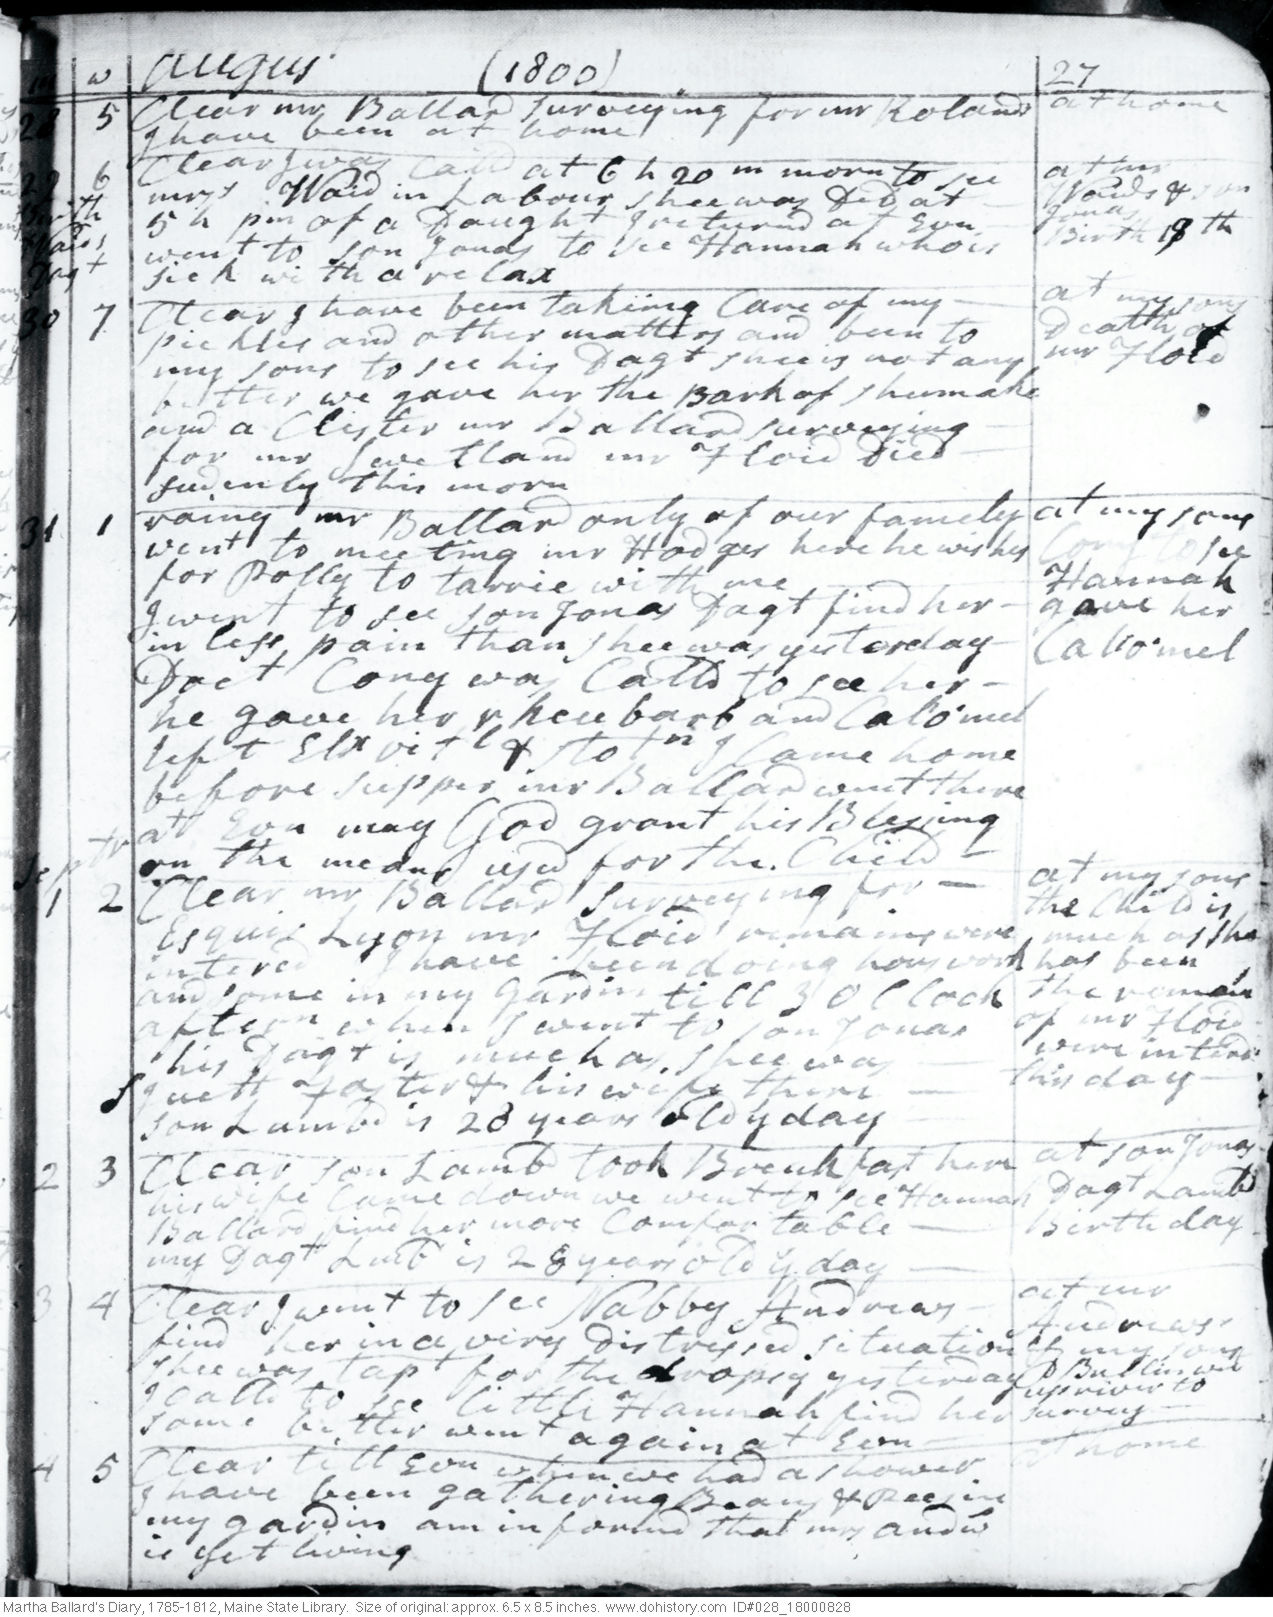 m w augus (1800) 27
28 5 Clear mr Ballard surveying for mr Roland at home
I have been at home
29 6 Clear I was Calld at 6 h 20 m morn to see at mr
Birth mrss Waid in Labour shee was Dd at Waids & son
5 h pm of a Daught I returnd at Evn Jonas
Waids went to son Jonas to see Hannah who is Birth 18th
Dagt sick with a relax
30 7 Clear I have been taking Care of my at my sons
pickles and other matters and been to Death of
my sons to see his Dagt shee is not any mr Floid
better we gave her the Bark of shumake
and a Clister mr Ballard surveying
for mr Sewtland mr Floid Died
sudenly this morn
31 1 raing mr Ballard only of our famely at my sons
went to meeting mr Hodges here he wishes Cony to see
for Polly to tarrie with me Hannah
I went to see son Jonas Dagt find her gave her
in less pain than shee was yesterday Calomel
Doct Cony was Calld to see her
he gave her rheubarb and Calomel
left Elx vitl & stotn I Came home
before supper mr Ballard went there
at Evn may God grant his Blessing
septr on the means usd for the Child
1 2 Clear mr Ballard surveying for at my sons
Esquir Lyon mr Floids remains were the Child is
intered I have been doing hous work much as she
and some in my Gardin till 3 O Clock has been
aftern when I went to son Jonas the remains
his Dagt is much as shee was of mr Floid
were interd
Juett Faster & his wife there this day
son Lambd is 28 years old y day
2 3 Clear son Lambd took Breukfast here at son Jonas
his wife Came down we went to see Hannah Dagt Lambd
Ballard find her more Comfortable Birth day
my Dagt Lmb is 28 years old y day
3 4 Clear I went to see Nabby Andrews at mr
find her in a very Distressed situation Andrews
shee was tapt for the dropsy yesterday & my sons
I calld to see little Hannah find her mr Ballin went up river to
some better went again at Evn survey
4 5 Clear till Evn when we had a shower at home
I have been gathering Beans & Pees in
my gardin am informd that mrs andw
is yet living
Martha Ballard's Diary, 1785-1812, Maine State Library. Size of original: approx. 6.5 x 8.5 inches. www.dohistory.com ID#028_18000828